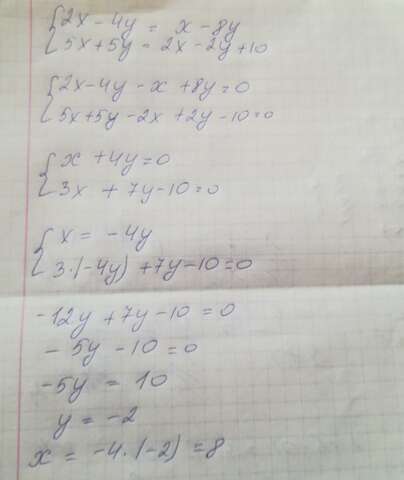 {2x - 4y = x - 8y
{5x + 5y = 2x - 2y + 10
{2x - 4y - x + 8y = 0
{5x + 5y - 2x + 2y - 10 = 0
{x + 4y = 0
{3x + 7y - 10 = 0
{x = -4y
{3·(-4y) + 7y - 10 = 0
-12y + 7y - 10 = 0
-5y - 10 = 0
-5y = 10
y = -2
x = -4·(-2) = 8